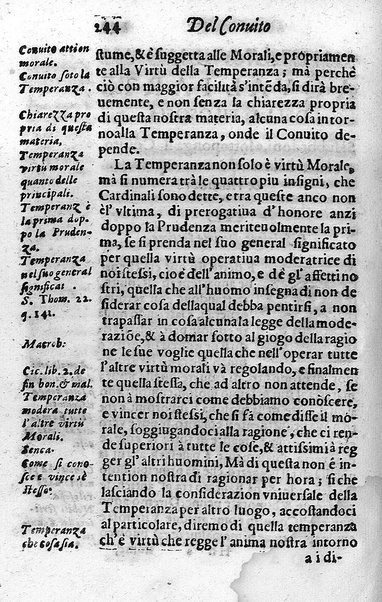 244 Del Conuito
Conuito attion
morale.
Conuito soto la
Temperanza.
Chiarezza pro
pria di questa
materia,
Temperanza
virtù morale
quanto delle
principale.
Temperanz è
la prima dop-
po la Pruden-
za.
Temperanza
nel suo general
significat.
S. Thom. 22.
q. 141.
Macrob:
Cic. lib. 2. de
fin bon. & mal.
Temperanza
modera tutte
l'altre virtù
Morali.
Seneca.
Come si cono-
sce e vince se
stesso.
Temperanza
che cosa sia.
stume, & è suggetta alle Morali, e propriamen
te alla Virtù della Temperanza; mà perchè
ciò con maggior facilità s'intēda, si dirà bre-
uemente, e non senza la chiarezza propria
di questa nostra materia, alcuna cosa intor-
no alla Temperanza, onde il Conuito de-
pende.
La Temperanza non solo è virtù Morale,
mà si numera trà le quattro piu insigni, che
Cardinali sono dette, e tra queste anco non
è l'vltima, di prerogatiua d'honore anzi
doppo la Prudenza meriteuolmente la pri-
ma, se si prenda nel suo general significato
per quella virtù operatiua moderatrice di
noi stessi, cioè dell'animo, e dè gl'affetti no
stri, quella che all'huomo insegna di non de
siderar cosa della qual debba pentirsi, a non
trapassar in cosa alcuna la legge della mode-
raziōe, & à domar sotto al giogo della ragio
ne le sue voglie quella che nell'operar tutte
l'altre virtù morali và regolando, e finalmen
te quella stessa, che ad altro non attende, se
non à mostrarci come debbiamo conoscere,
e vincer noi stessi, che si fà come disse il mo-
rale, soggiugandoci alla ragione, che ci ren-
de superiori à tutte le cose, & attissimi à reg
ger gl'altri huomini, Mà di questa non è in-
tention nostra di ragionar per hora; si che
lasciando la considerazion vniuersale della
Temperanza per altro luogo, accostandoci
al particolare, diremo di quella temperanza
ch'è virtù che regge l'anima nostra intorno
a i di-